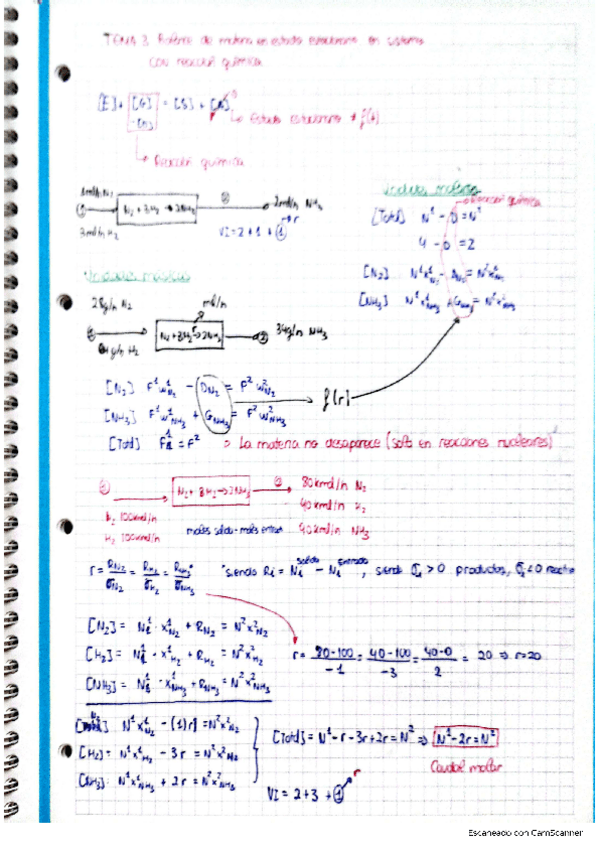 TEMA 3 Balance de materia en estado estacionario en sistemas
con reacción química
[E] + [G] = [S] + [A]
Estado estacionario ≠ f(t)
Reacción química
1mol/h N₂
① N₂ + 3H₂ → 2NH₃ ② 2mol/h NH₃
3mol/h H₂
VI = 2 + 1 + ① r
Unidades molares
Reacción química
[Total] N¹ - D = N²
4 - D = 2
[N₂] N¹x¹N₂ - ΔN₂ = N²x²N₂
[NH₃] N¹x¹NH₃ + GNH₃ = N²x²NH₃
Unidades másicas
28g/h N₂
N₂ + 3H₂ → 2NH₃ ② 34g/h NH₃
g/h H₂
[N₂] F¹w¹N₂ - DN₂ = F²w²N₂
[NH₃] F¹w¹NH₃ + GNH₃ = F²w²NH₃
f(r)
[Total] F¹ = F² ⇒ La materia no desaparece (solo en reacciones nucleares)
① N₂ + 3H₂ → 2NH₃ ② 80kmol/h N₂
40kmol/h H₂
N₂ 100kmol/h
H₂ 100kmol/h
moles salida - moles entran
40kmol/h NH₃
r = RN₂/σN₂ = RH₂/σH₂ = RNH₃/σNH₃ *siendo Ri = Ni salida - Ni entrada, siendo σi > 0 productos, σi < 0
[N₂] = N¹ · x¹N₂ + RN₂ = N²x²N₂
[H₂] = N¹ · x¹H₂ + RH₂ = N²x²H₂
[NH₃] = N¹ · x¹NH₃ + RNH₃ = N²x²NH₃
r = 80-100/-1 = 40-100/-3 = 40-0/2 = 20 ⇒ r=20
N¹x¹N₂ - (1)r = N²x²N₂
[H₂] = N¹x¹H₂ - 3r = N²x²H₂
[NH₃] N¹x¹NH₃ + 2r = N²x²NH₃
[Total] = N¹ - r - 3r + 2r = N² ⇒ N¹ - 2r = N²
Caudal molar
VI = 2 + 3 + ① r
Escaneado con CamScanner